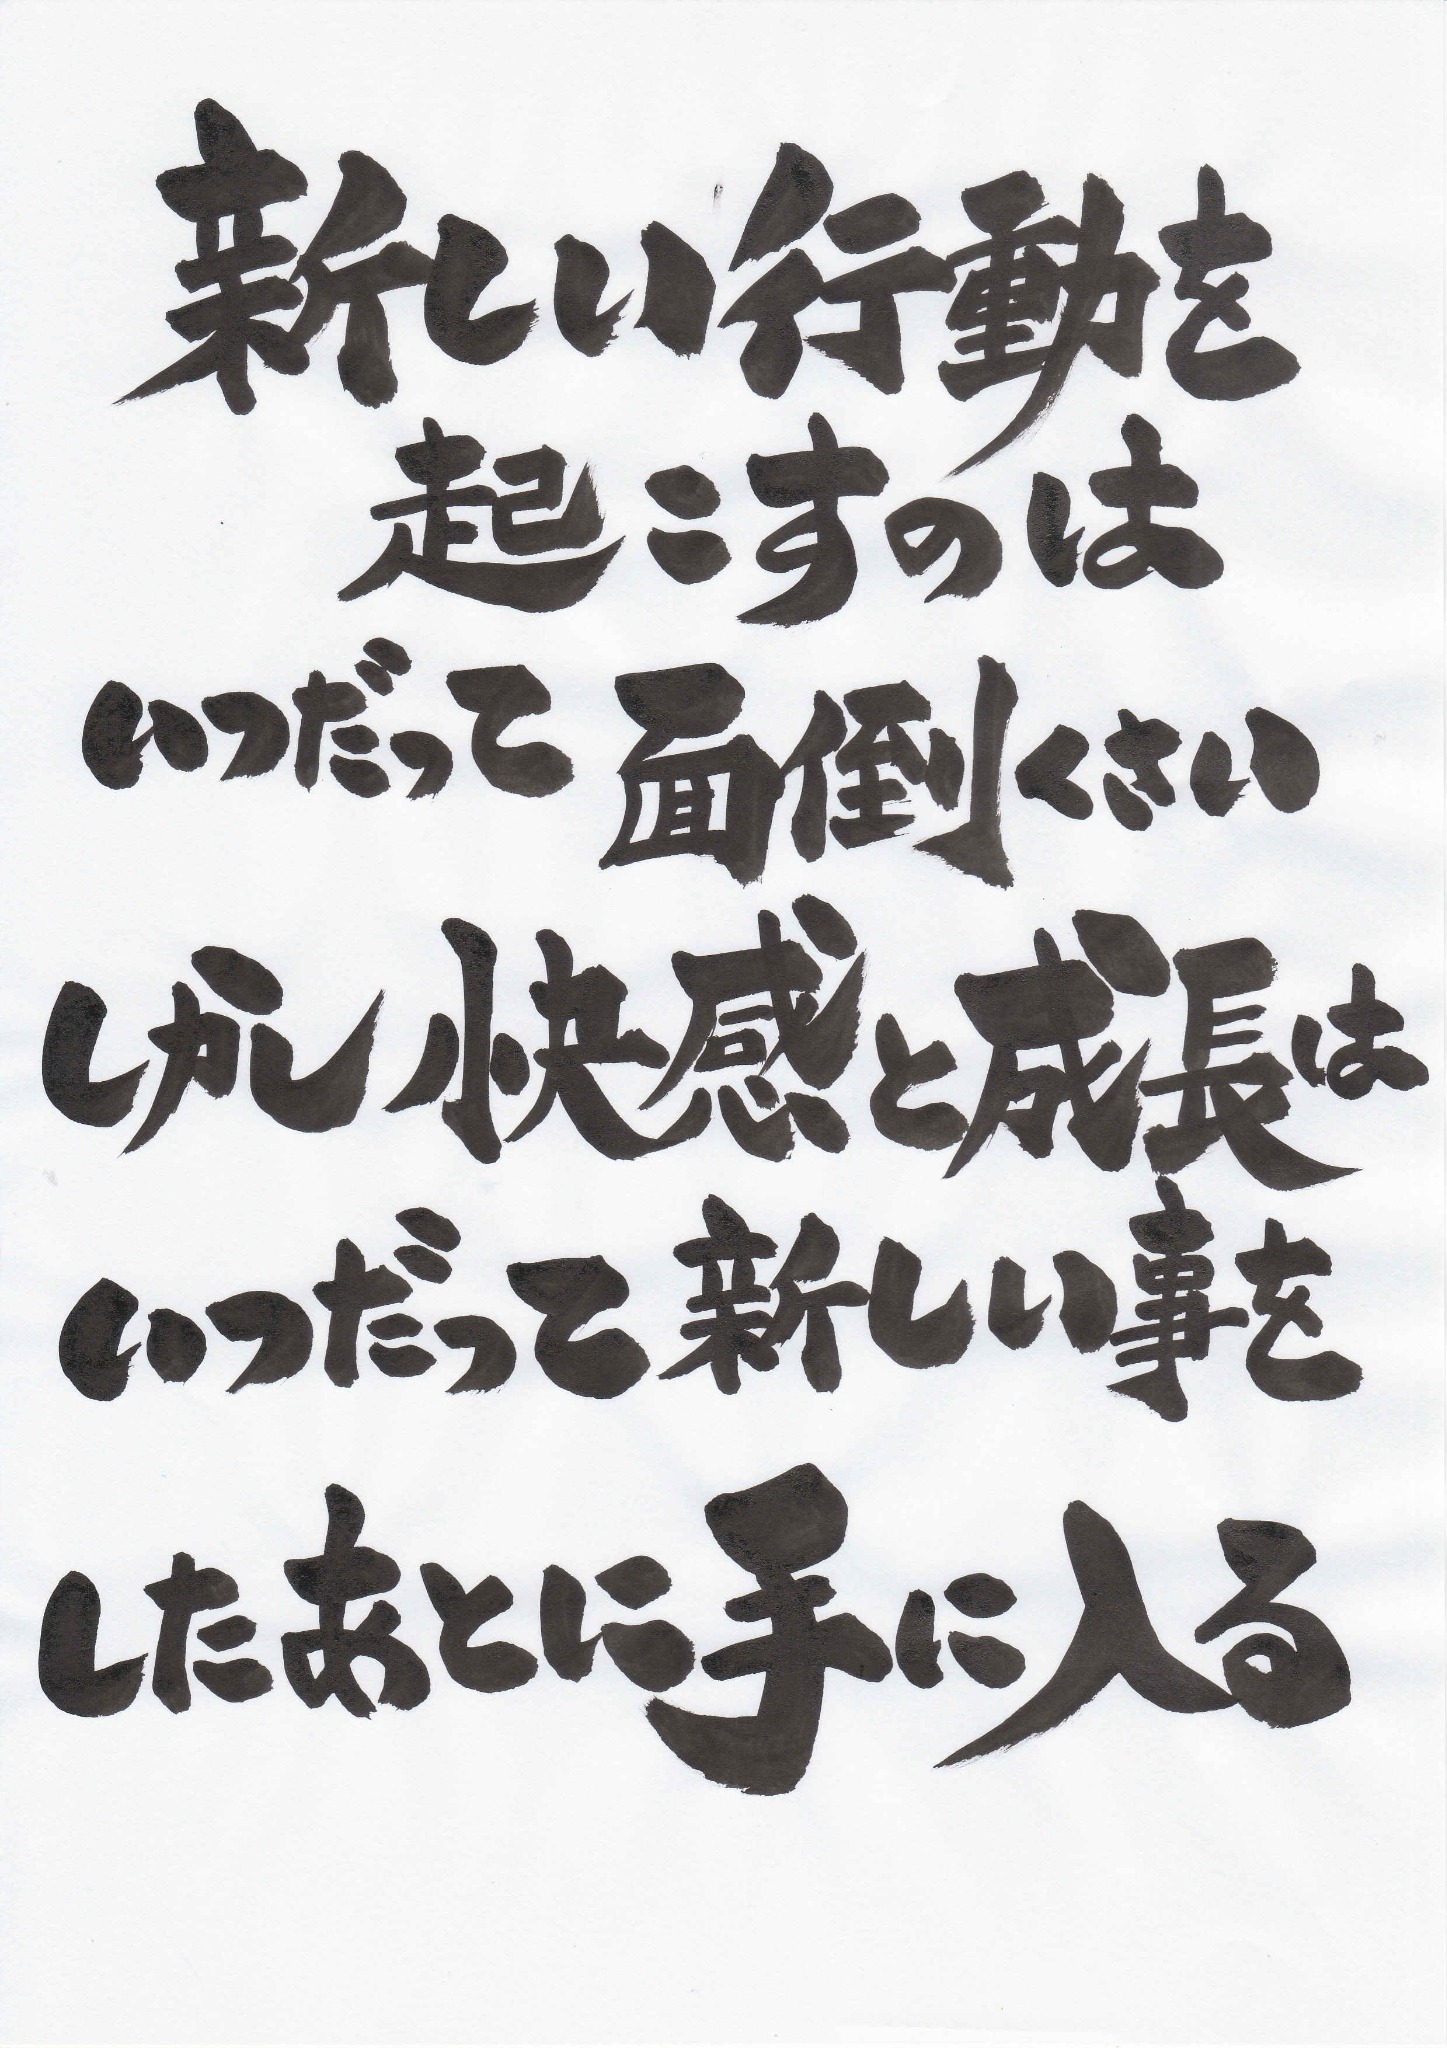 新しい行動を
起こすのは
いつだって面倒くさい
しかし快感と成長は
いつだって新しい事を
したあとに手に入る